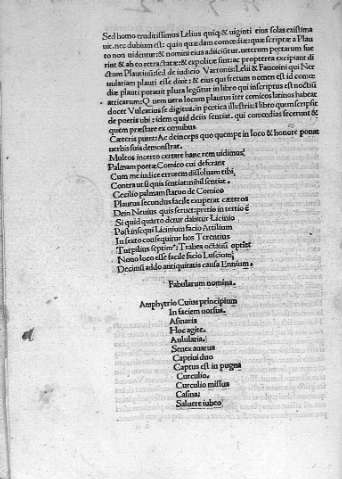 Sed homo eruditissimus Lelius quiq; & uiginti eius solas existima
uit. nec dubium est: quin quædam comœdiæ: quæ scriptæ a Plau
to non uidentur: & nominis eius adiicitur. ueterum poetarum fue
rint & ab eo retractatæ: & expolitæ sint: ac propterea excipiant di
ctum Plautinū: sed de iudicio Varronis: Lelii & Fauorini qui Ner
uulariam plauti esse dixit: & eius qui fretum nomen est id comœ
diæ plauti ponunt plura legitur in libro qui inscriptus est noctiū
atticarum: Quem uero locum plautus iter comicos latinos habeat
docet Vulcatius se digitus, in poetica illustris: libro quem scripsit
de poetis ubi: idem quid de iis sentiat. qui comœdias fecerunt &
quem præstare ex omnibus
Cæteris putet: Ac deinceps quo quemque in loco & honore ponat
uerbis suis demonstrat.
Multos incerto certare hanc rem uidimus:
Palmam poetæ Comico cui deferant
Cum me iudice errorem dissoluam tibi,
Contra ut si quis sentiat: nihil sentiat.
Cecilio palmam statuo de Comico
Plautus secundus facile exuperat cæteros
Dein Neuius quis feruet: pretio in tertio ē
Si quid quarto detur dabitur Licinio
Post insequi Licinium facio Attilium
In sexto consequitur hos Terentius
Turpilius septimū: Trabea octauū optist
Nono loco esse facile facio Luscium:
Decimū addo antiquitatis causa Ennium.
Fabularum nomina.
Amphytrio Cuius principium
In faciem uorsus.
Asinaria
Hoc agite.
Aulularia.
Senex auarus
Captiui duo
Captus est in pugna
Curculio.
Curculio missus
Casina:
Saluere iubeo